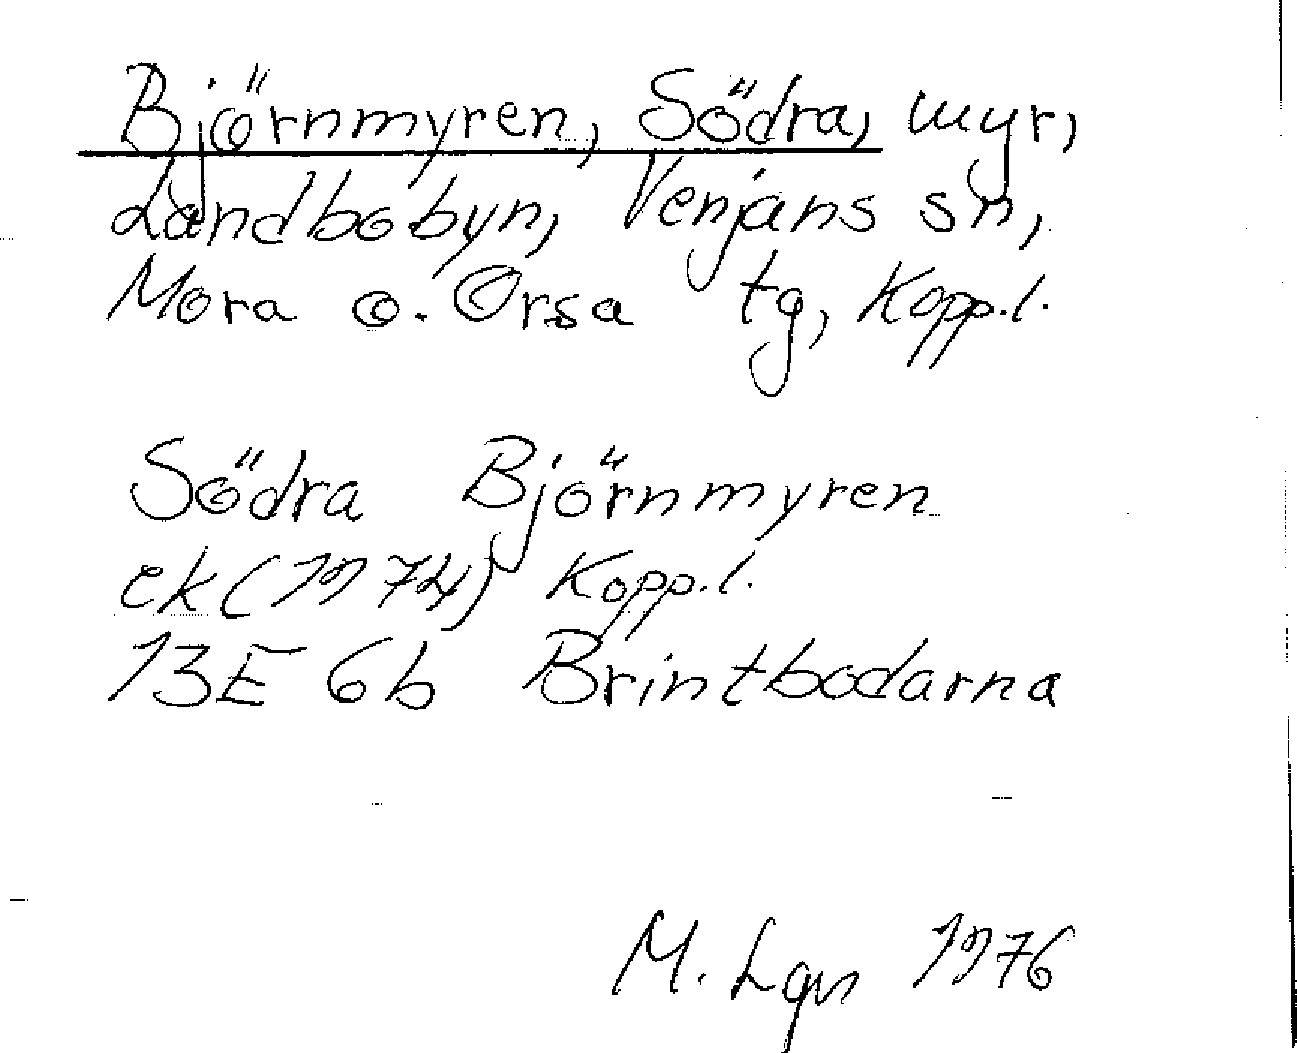 Björnmyren, Södra, myr,
Landbobyn, Venjans sn,
Mora o. Orsa tg, Kopp.l.
Södra Björnmyren
ek (1974) Kopp.l.
13E 6b Brintbodarna
M. Lgn 1976